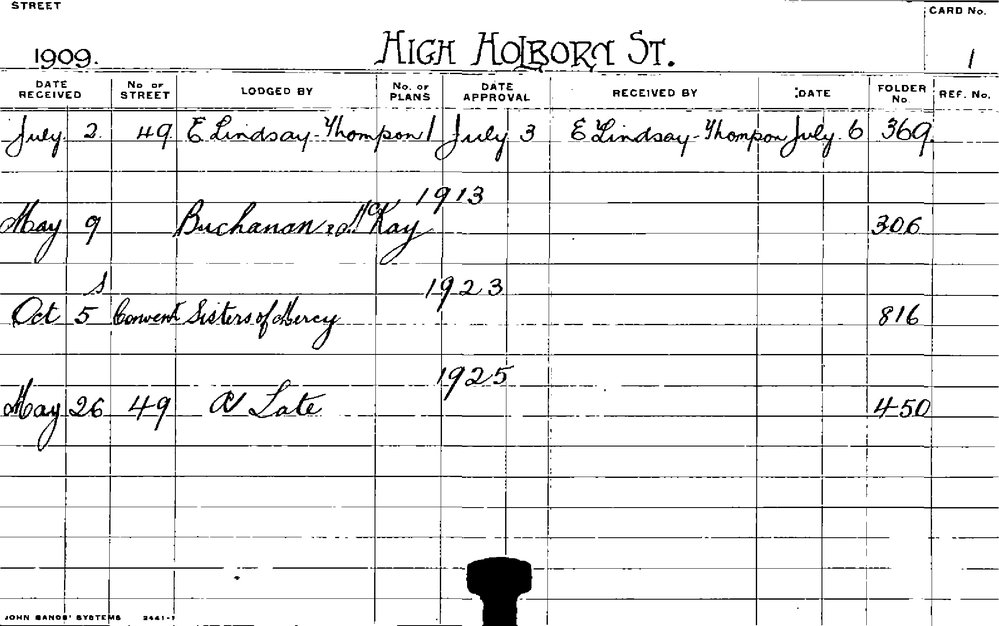 STREET
CARD No.
1909. HIGH HOLBORN ST. 1
DATE RECEIVED No OF STREET LODGED BY No. OF PLANS DATE APPROVAL RECEIVED BY DATE FOLDER No. REF. No.
July 2. 49 E Lindsay-Thompson 1 July 3 E Lindsay-Thompson July 6 369.
1913
May 9 Buchanan & McKay 306
s 1923
Oct 5 Convent Sisters of Mercy 816
1925
May 26 49 Late 450
JOHN SANDS' SYSTEMS 2441-1